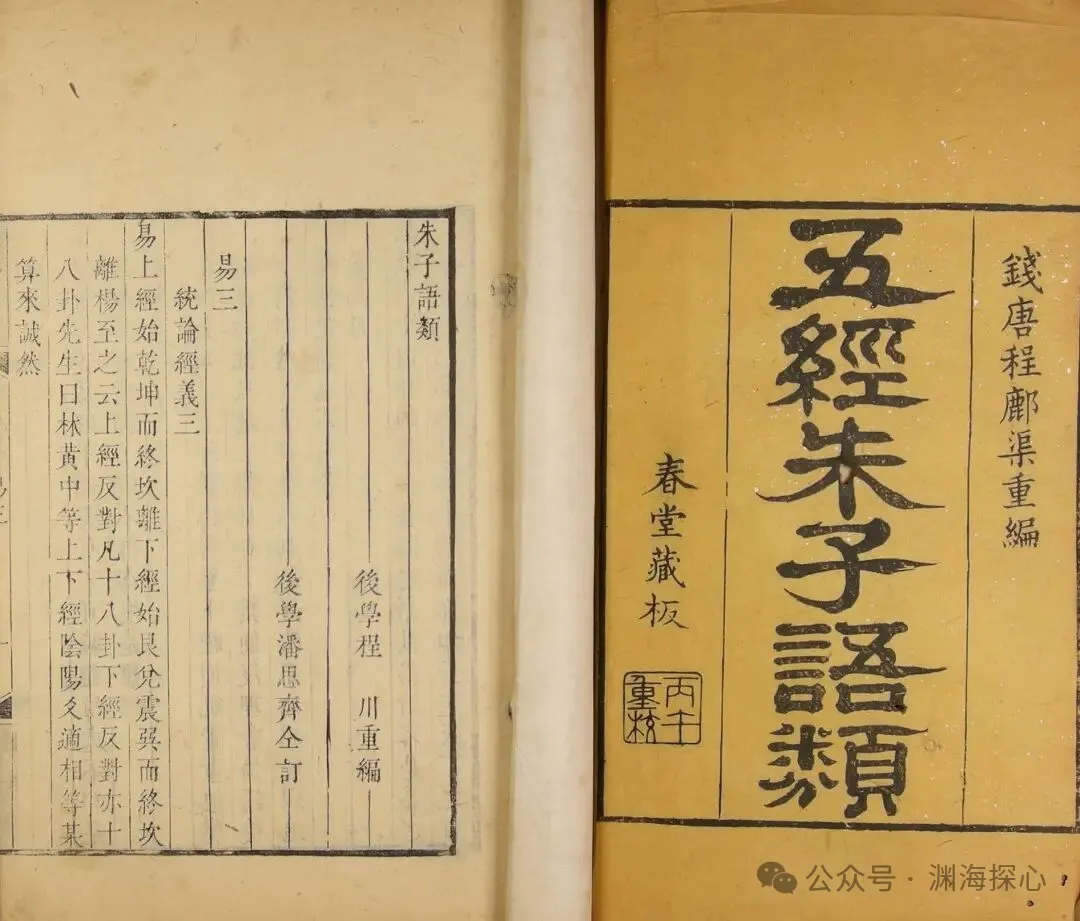 錢唐程鄜渠重編
五經朱子語類
春堂藏板
丙午
重校
朱子語類
後學程 川重編
後學潘思齊仝訂
易三
統論經義三
易上經始乾坤而終坎離下經始艮兌震巽而終坎
離楊至之云上經反對凡十八卦下經反對亦十
八卦先生曰林黃中等上下經陰陽爻適相等某
算來誠然
公众号·渊海探心